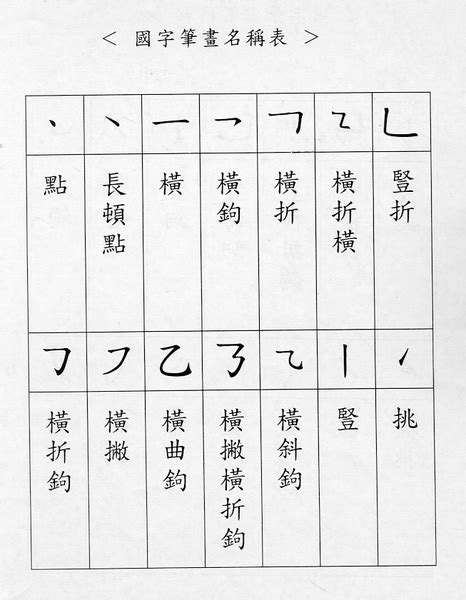 < 國字筆畫名稱表 >
丶 ㇔ 一 ㇖ ㇕ ㇅ ㇗
點
長頓點
橫
橫鉤
橫折
橫折橫
豎折
㇆ ㇇ 乙 ㇡ ⺄ 丨 ㇀
橫折鉤
橫撇
橫曲鉤
橫撇橫折鉤
橫斜鉤
豎
挑